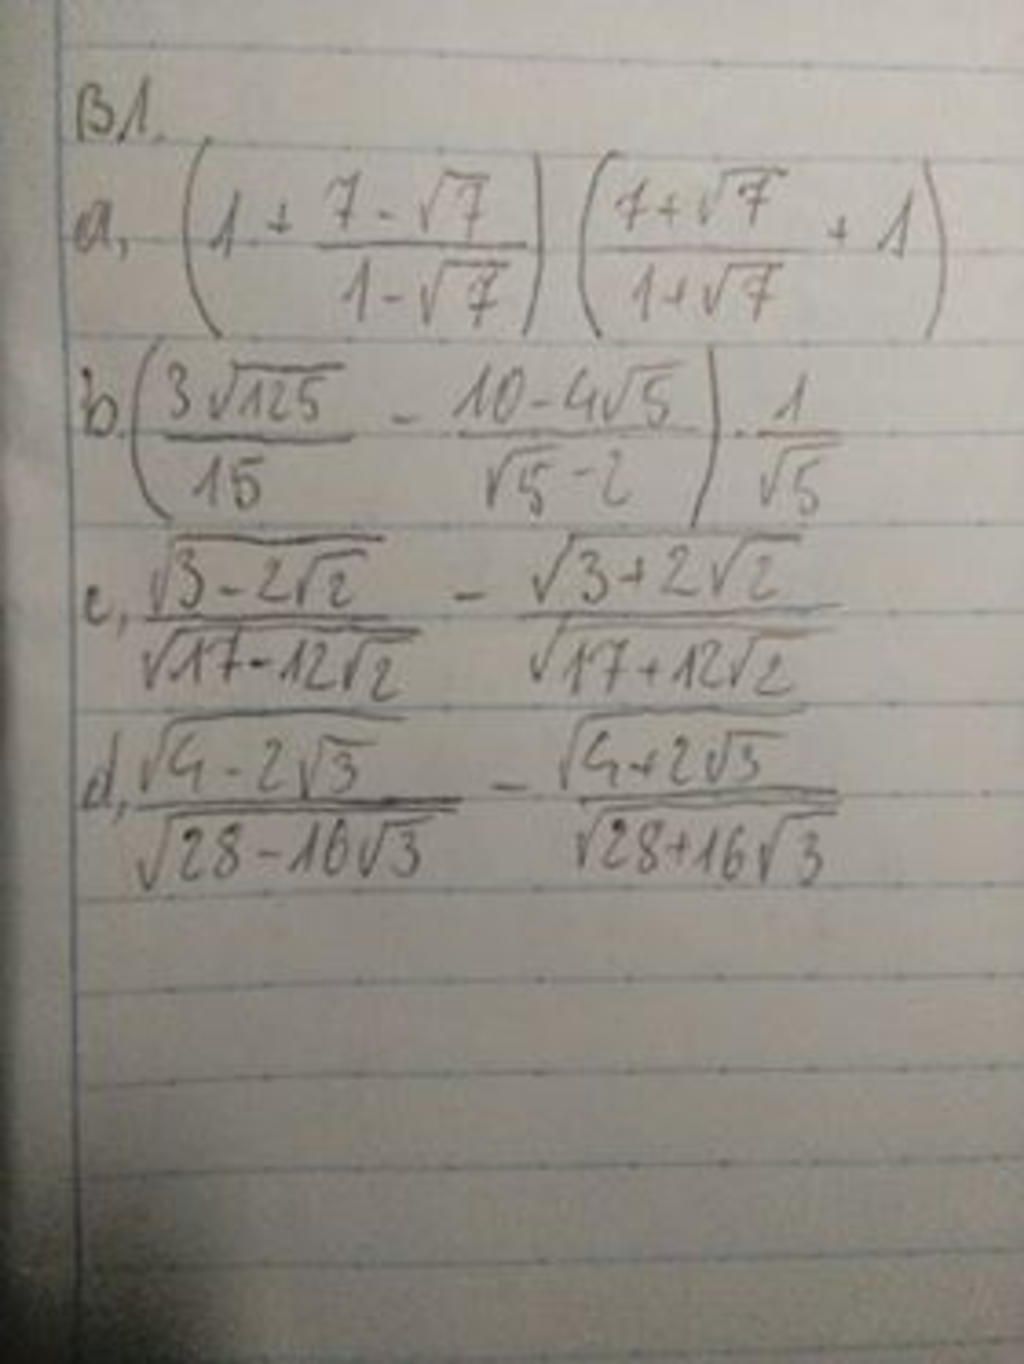 B1.
a, (1 + (7 - √7)/(1 - √7)) ((7 + √7)/(1 + √7) + 1)
b. (3√125/15 - (10 - 4√5)/(√5 - 2)) · 1/√5
c, √(3 - 2√2)/√(17 - 12√2) - √(3 + 2√2)/√(17 + 12√2)
d, √(4 - 2√3)/√(28 - 16√3) - √(4 + 2√3)/√(28 + 16√3)